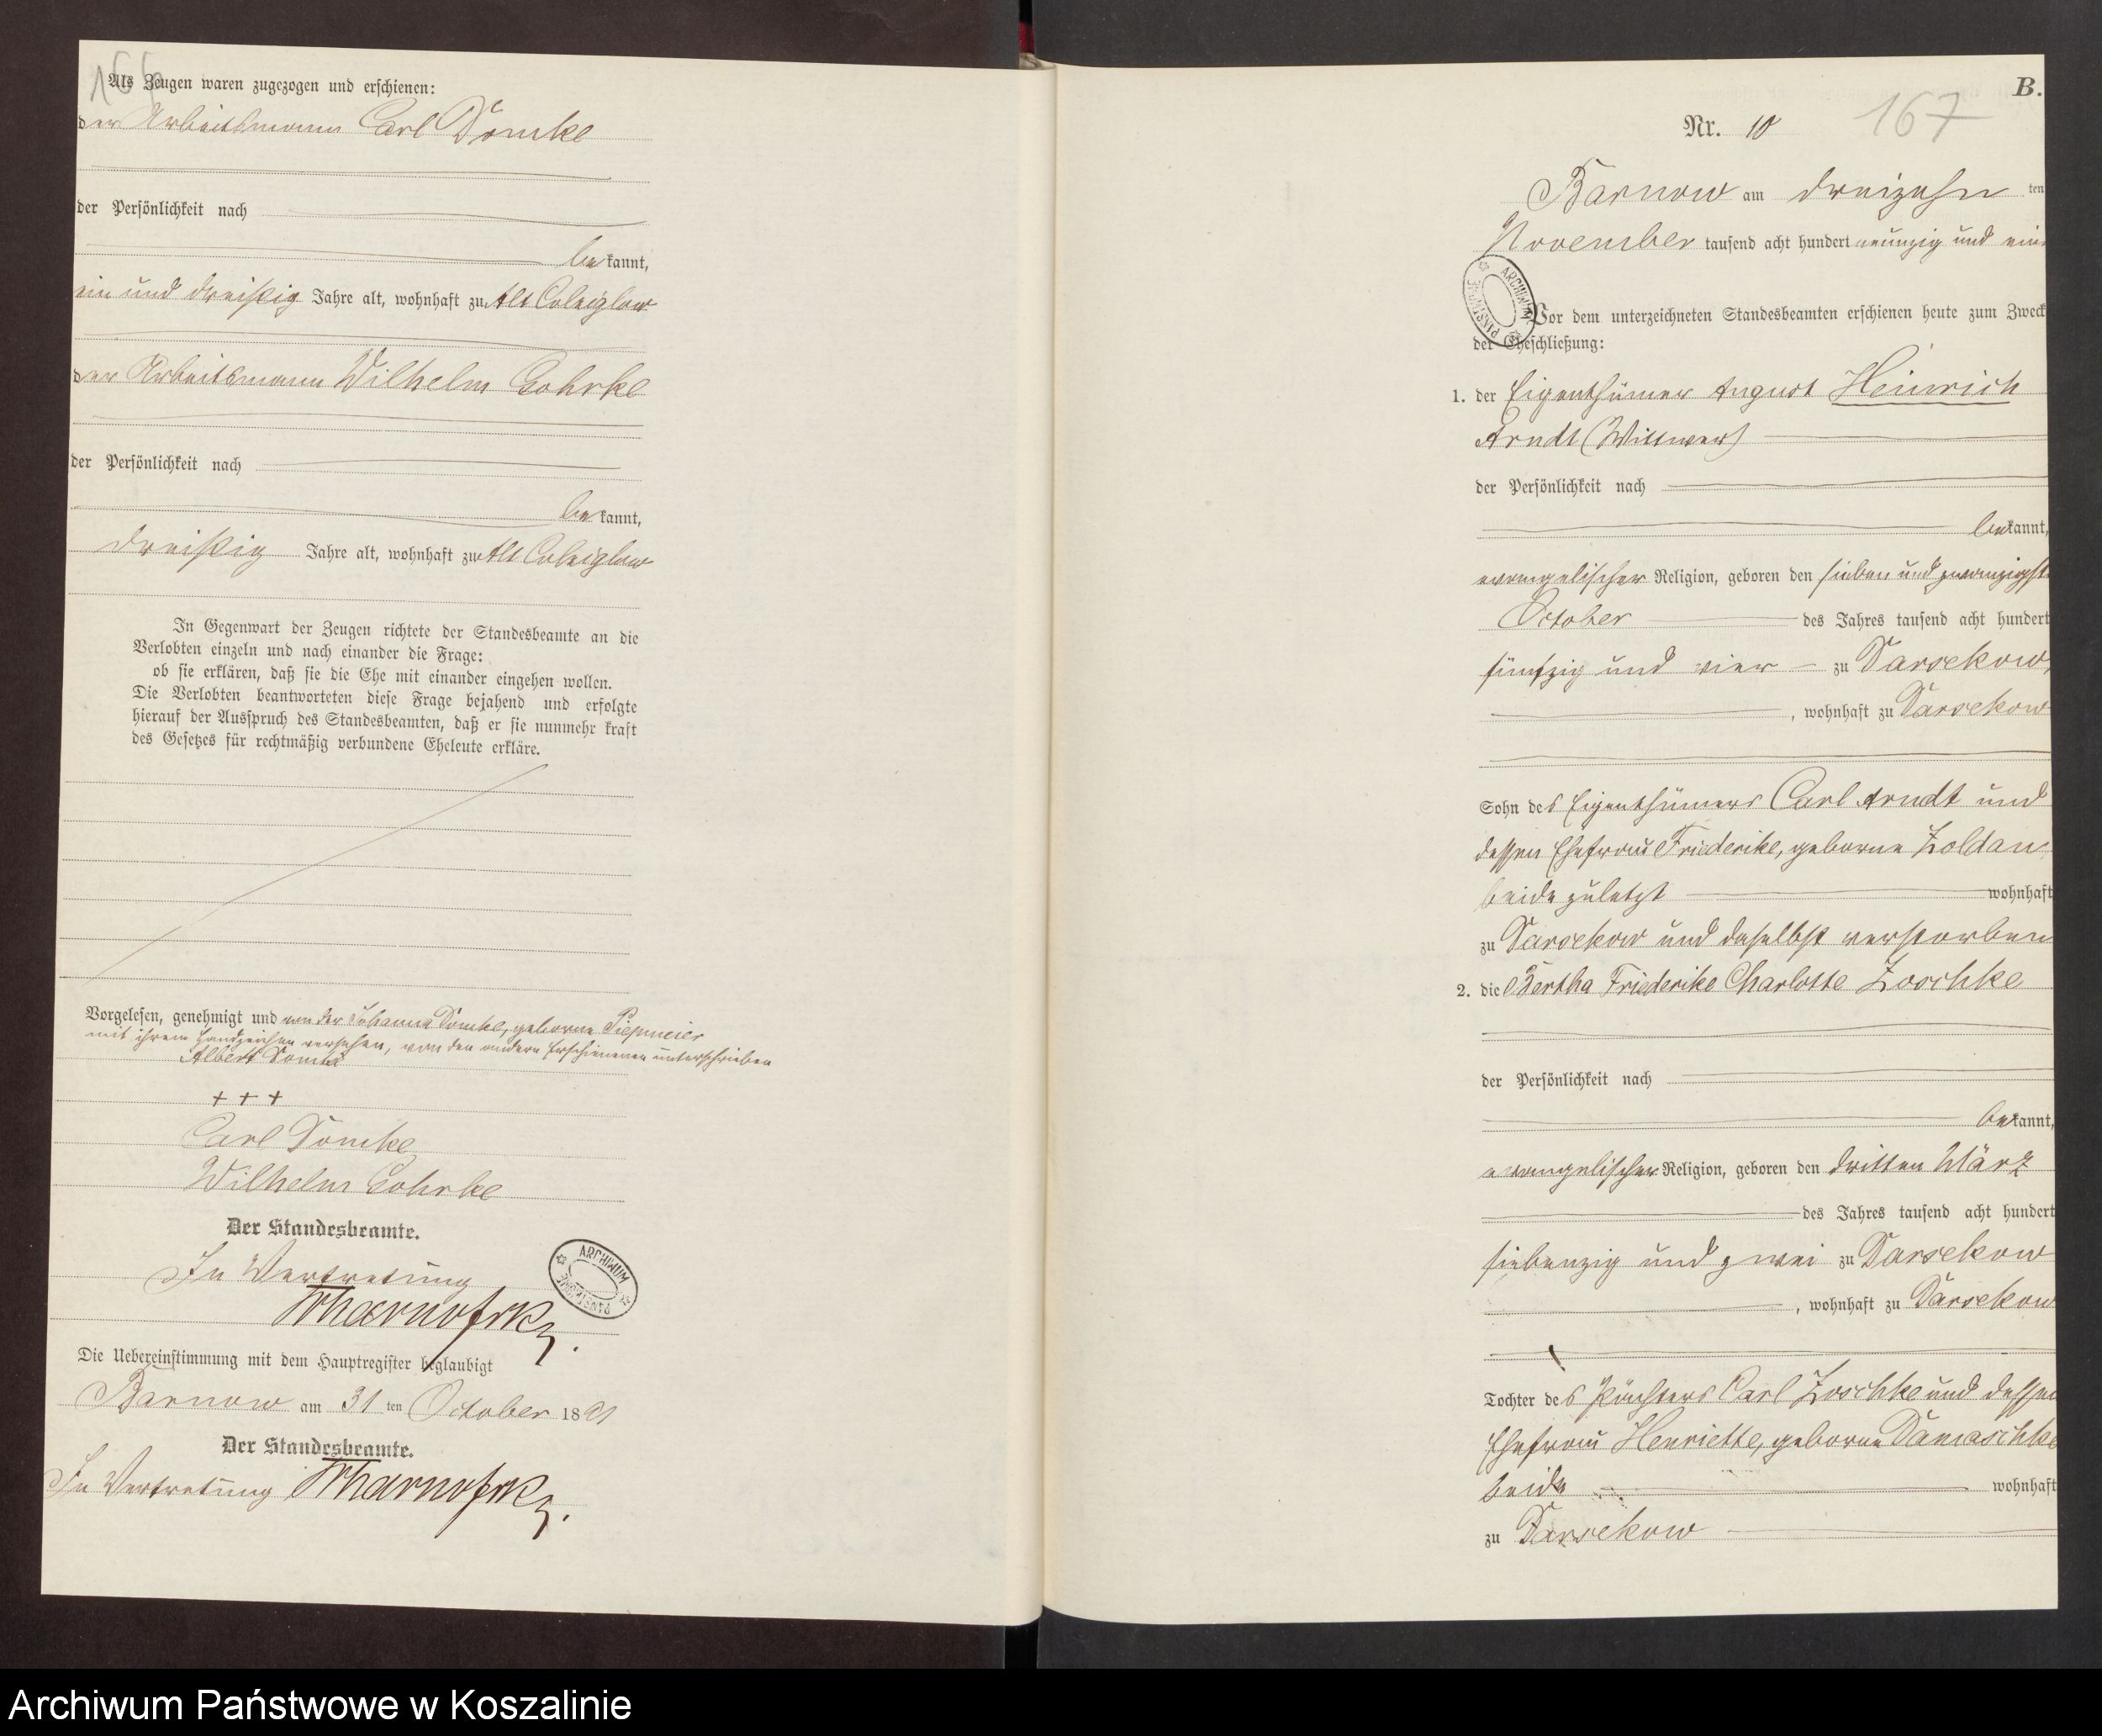 166
Als Zeugen waren zugezogen und erschienen:
der Arbeitsmann Carl Domke
der Persönlichkeit nach
bekannt,
ein und dreißig Jahre alt, wohnhaft zu Alt Colziglow
der Arbeitsmann Wilhelm Gohrke
der Persönlichkeit nach
bekannt,
dreißig Jahre alt, wohnhaft zu Alt Colziglow
In Gegenwart der Zeugen richtete der Standesbeamte an die
Verlobten einzeln und nach einander die Frage:
ob sie erklären, daß sie die Ehe mit einander eingehen wollen.
Die Verlobten beantworteten diese Frage bejahend und erfolgte
hierauf der Ausspruch des Standesbeamten, daß er sie nunmehr kraft
des Gesetzes für rechtmäßig verbundene Eheleute erkläre.
Vorgelesen, genehmigt und von der Johanna Domke, geborne Piepmeier
mit ihrem Handzeichen versehen, von den andern Erschienenen unterschrieben
Albert Domke
+ + +
Carl Domke
Wilhelm Gohrke
Der Standesbeamte.
In Vertretung
ARCHIWUM PAŃSTWOWE
Die Uebereinstimmung mit dem Hauptregister beglaubigt
Barnow am 31 ten October 1891
Der Standesbeamte.
In Vertretung
B.
Nr. 10
167
Barnow am dreizehn ten
November tausend acht hundert neunzig und ein
ARCHIWUM PAŃSTWOWE
Vor dem unterzeichneten Standesbeamten erschienen heute zum Zweck
der Eheschließung:
1. der Eigenthümer August Heinrich
Arndt (Wittwer)
der Persönlichkeit nach
bekannt,
evangelischer Religion, geboren den sieben und zwanzigst
October des Jahres tausend acht hundert
fünfzig und vier zu Darsekow,
, wohnhaft zu Darsekow
Sohn des Eigenthümers Carl Arndt und
dessen Ehefrau Friederike, geborne Zoldan
beide zuletzt wohnhaft
zu Darsekow und daselbst verstorben
2. die Bertha Friederike Charlotte Zoschke
der Persönlichkeit nach
bekannt,
evangelischer Religion, geboren den dritten März
des Jahres tausend acht hundert
siebenzig und zwei zu Darsekow
, wohnhaft zu Darsekow
Tochter des Pächters Carl Zoschke und dessen
Ehefrau Henriette, geborne Damaschke
beide wohnhaft
zu Darsekow
Archiwum Państwowe w Koszalinie